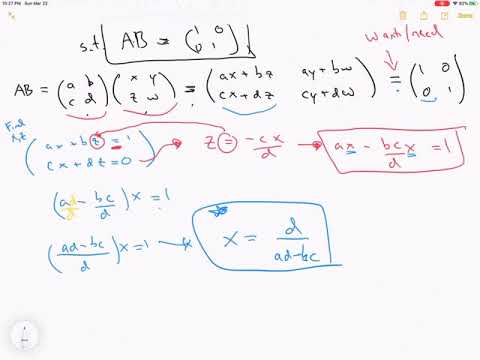 10:27 PM Sun Mar 22
92%
Done
s.t. AB = (1 0
0 1)
want/need
AB = (a b
c d) (x y
z w) = (ax+bz ay+bw
cx+dz cy+dw) = (1 0
0 1)
Find
x,z
(ax+bz=1
cx+dz=0 → z = -cx/d → ax - bc/d x = 1
(ad/d - bc/d)x = 1
((ad-bc)/d)x=1 → x = d/(ad-bc)